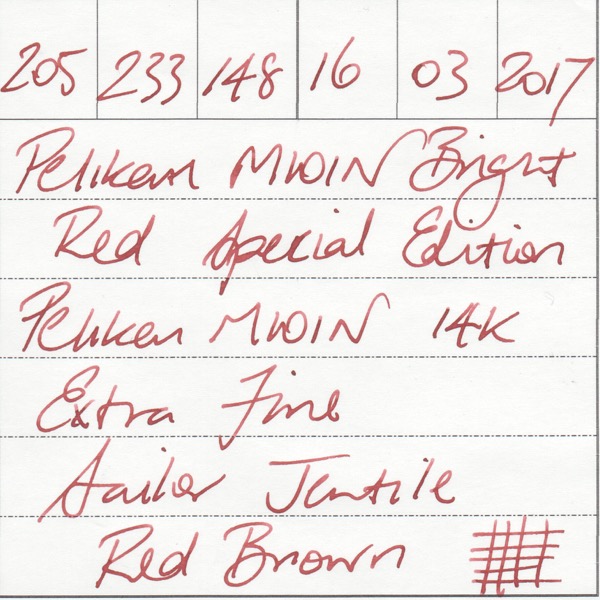 205 233 148 16 03 2017
Pelikan M101N Bright
Red Special Edition
Pelikan M101N 14K
Extra Fine
Sailor Jentile
Red Brown